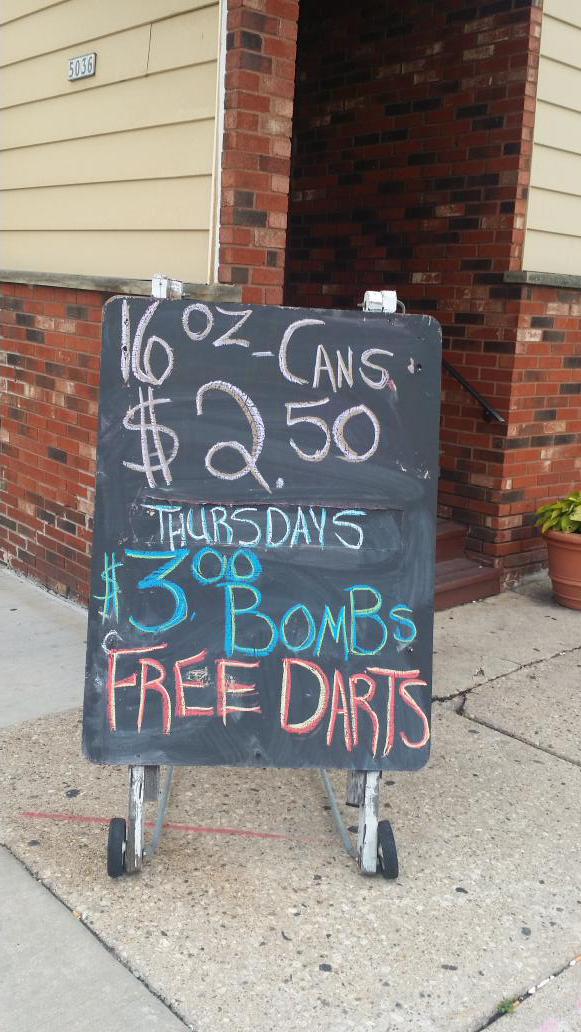 5036
16 OZ - CANS
$2.50
THURSDAYS
$3.00 BOMBS
FREE DARTS